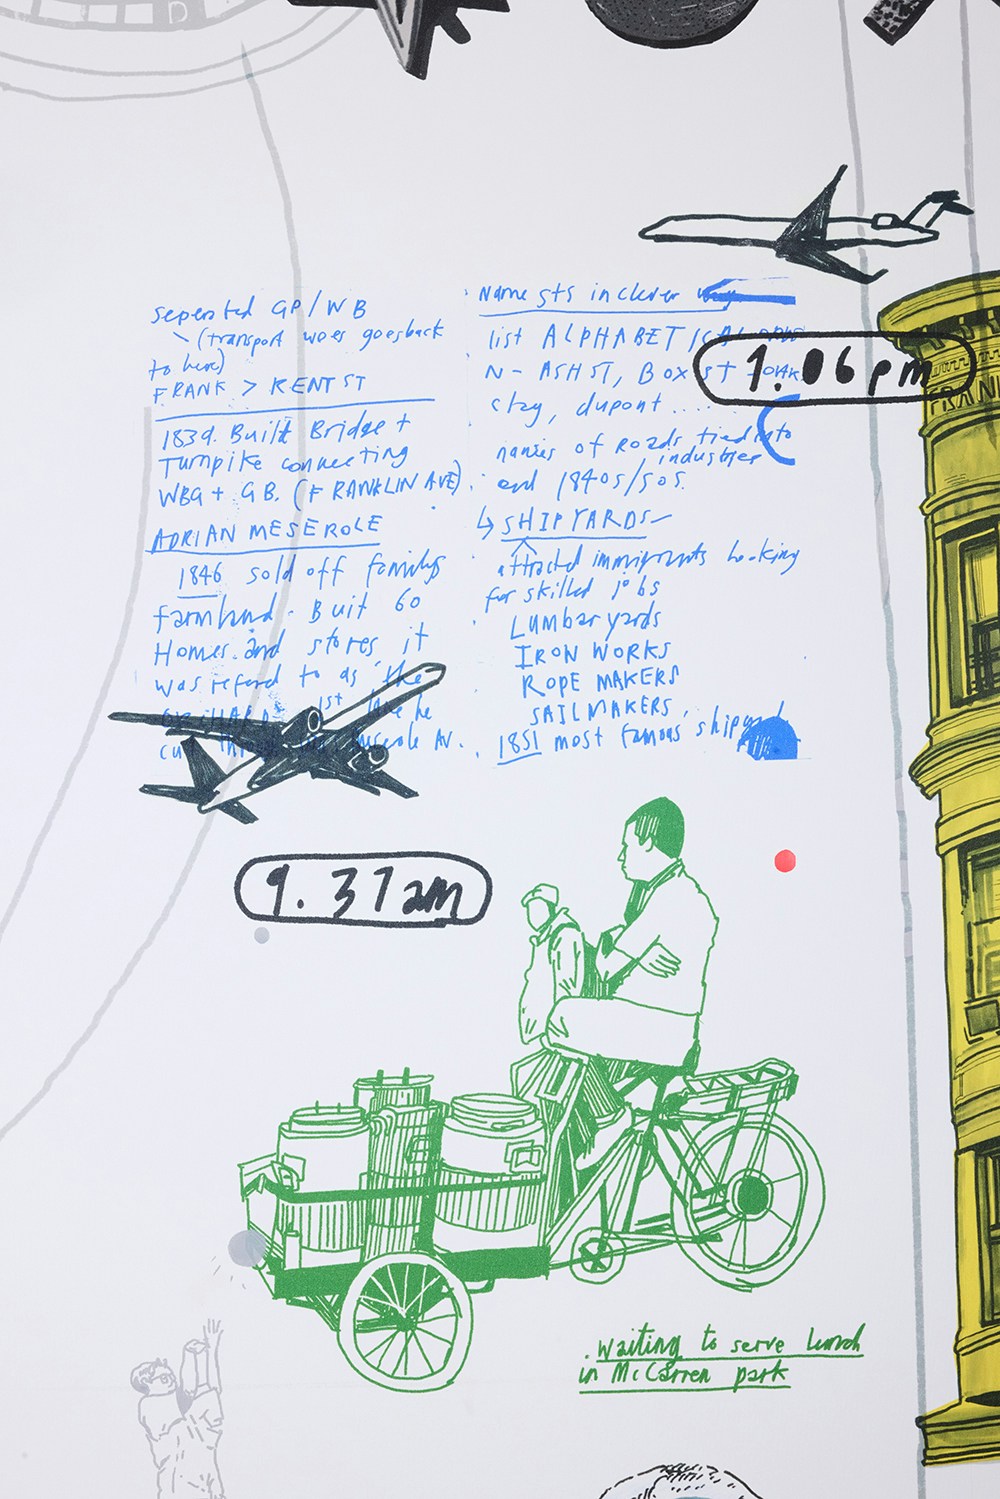 seperated GP/WB
(transport woes goes back
to here)
FRANK > KENT ST
1839. Built Bridge +
Turnpike connecting
WBG + GB. (FRANKLIN AVE)
ADRIAN MESEROLE
1846 sold off familys
farmland. Buit 60
Homes and stores it
was referd to as 'the
1st
Meserole Av.
Name sts in clever
list ALPHABETICAL
N - ASH ST, BOX ST
clay, dupont....
names of Roads tied into
industries
and 1840s/50s.
↳ SHIPYARDS
attracted immigrants looking
for skilled jobs
Lumbar yards
IRON WORKS
ROPE MAKERS
SAILMAKERS,
1851 most famous shipyard
1.06pm
FRAN
9.37am
. waiting to serve lunch
in McCarren park